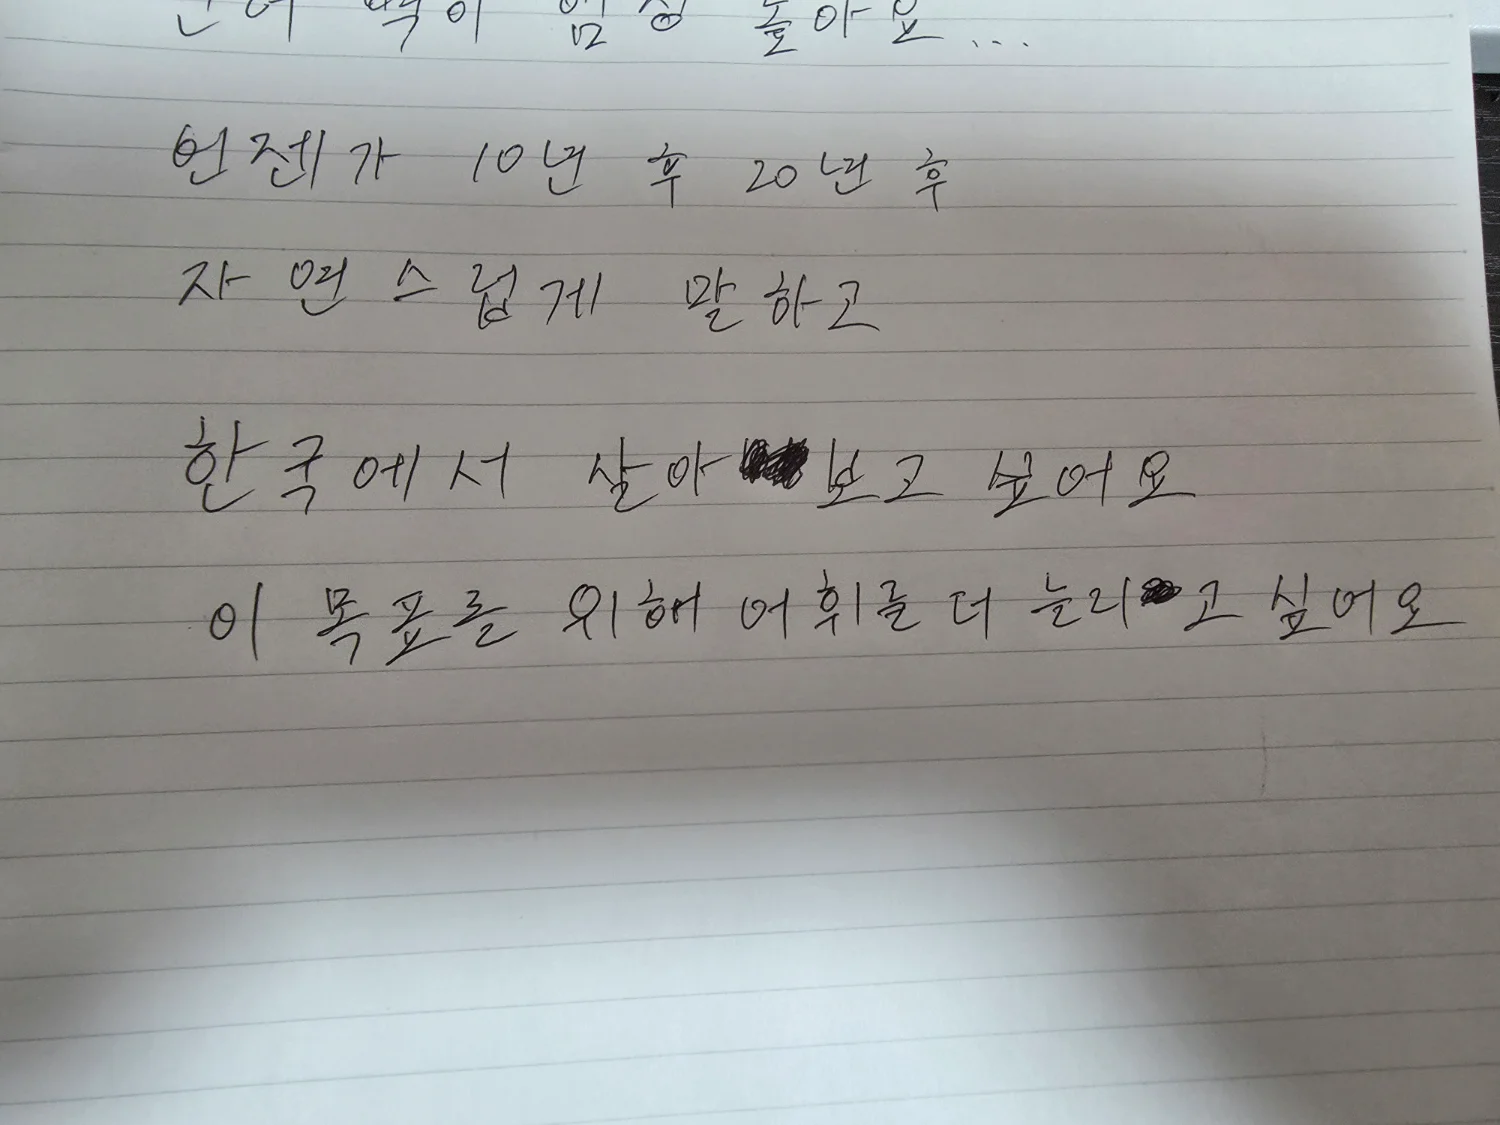 언젠가 10년 후 20년 후
자연스럽게 말하고
한국에서 살아 보고 싶어요
이 목표를 위해 어휘를 더 늘리고 싶어요